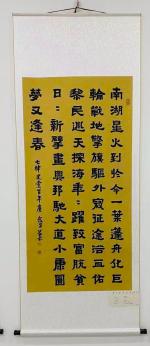 南湖星火到於今一葉蓬舟化巨
輪敢地擎旗驅外寇征途浴血佑
黎民巡天探海牽躍致富脫貧
日新擘畫興邦馳大道小康圓
夢又逢春
七律